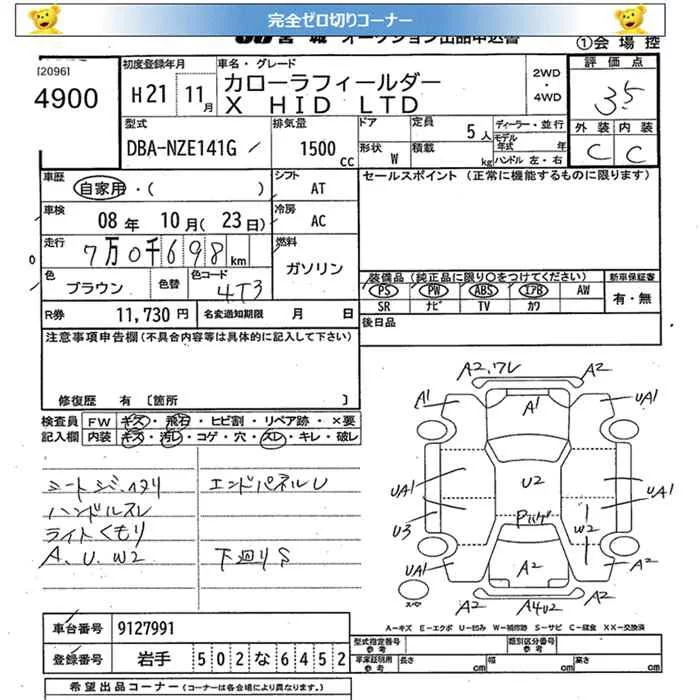 完全ゼロ切りコーナー
JU 宮城 オークション出品申込書
①会場控
[2096]
4900
初度登録年月
H21 11月
車名・グレード
カローラフィールダー
X HID LTD
2WD
・
4WD
評価点
3.5
型式
DBA-NZE141G
排気量
1500cc
ドア
形状 W
定員 5人
積載 kg
ディーラー・並行
モデル年式 年
ハンドル 左・右
外装 内装
C C
車歴
自家用・( )
シフト AT
車検
08年 10月(23日)
冷房 AC
走行
7万0千698km
燃料
ガソリン
色
ブラウン
色替
色コード
4T3
セールスポイント(正常に機能するものに限ります)
装備品(純正品に限り○をつけてください)
新車保証書
PS PW ABS エアB AW
SR ナビ TV カワ
有・無
R券 11,730円
名変通知期限 月 日
後日品
注意事項申告欄(不具合内容等は具体的に記入して下さい)
修復歴 有〔箇所 〕
検査員記入欄
FW キズ・飛石・ヒビ割・リペア跡・×要
内装 キズ・汚レ・コゲ・穴・スレ・キレ・破レ
シートシミ、ヘタリ
ハンドルスレ
ライトくもり
A、U、W2
エンドパネルU
下廻りS
A2,ワレ A2
A1 A1 UA1
UA1 U2 UA1
U3 W2
UA1 A2 A2
A2 A4U2 A2
スペア
A-キズ E-エクボ U-凹み W-補修跡 S-サビ C-腐食 XX-交換済
車台番号 9127991
登録番号 岩手 502な6452
型式指定番号
類別区分番号
車庫証明用参考 長さ cm 幅 cm 高さ cm
希望出品コーナー(コーナーは各会場により異なります。)